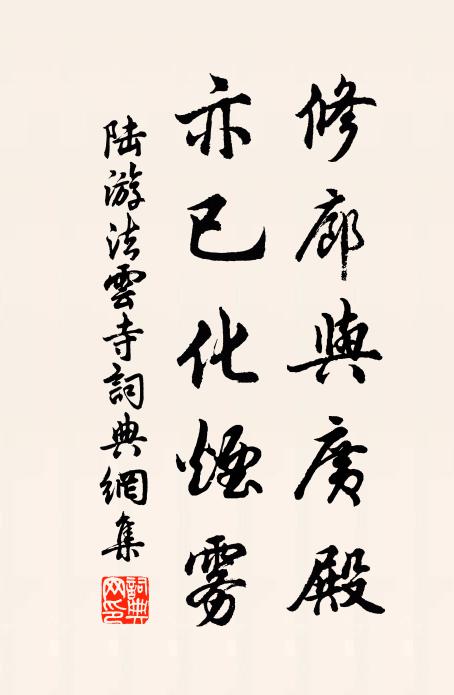 修廊與廣殿
亦已化煙霧
陸游法雲寺詞典網集
詞典
网印